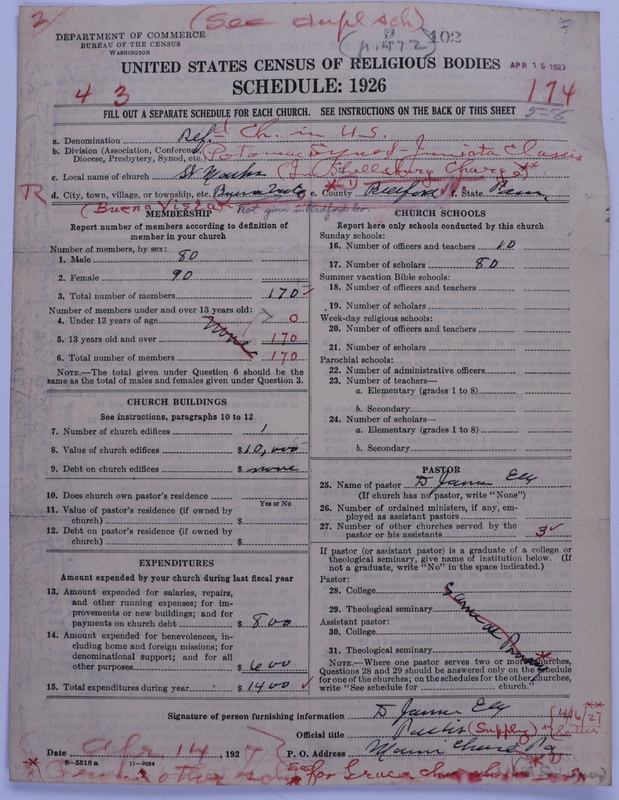 2 (See dupl sch)
DEPARTMENT OF COMMERCE
BUREAU OF THE CENSUS
WASHINGTON
(p. 472) 102
UNITED STATES CENSUS OF RELIGIOUS BODIES APR 15 1927
SCHEDULE: 1926
4 3 174
FILL OUT A SEPARATE SCHEDULE FOR EACH CHURCH. SEE INSTRUCTIONS ON THE BACK OF THIS SHEET
a. Denomination Ref. Ch. in U.S.
b. Division (Association, Conference, Diocese, Presbytery, Synod, etc.) Potomac Synod - Juniata Classis
c. Local name of church St Marks (In Schellsburg Charge)
d. City, town, village, or township, etc. Buena Vista e. County Bedford f. State Penn
(Buena Vista) Not given in Bedford Co.
MEMBERSHIP
Report number of members according to definition of member in your church
Number of members, by sex:
1. Male 80
2. Female 90
3. Total number of members 170
Number of members under and over 13 years old:
4. Under 13 years of age none 0
5. 13 years old and over 170
6. Total number of members 170
NOTE.—The total given under Question 6 should be the same as the total of males and females given under Question 3.
CHURCH BUILDINGS
See instructions, paragraphs 10 to 12
7. Number of church edifices 1
8. Value of church edifices $ 10,000
9. Debt on church edifices $ none
10. Does church own pastor's residence
Yes or No
11. Value of pastor's residence (if owned by church) $
12. Debt on pastor's residence (if owned by church) $
EXPENDITURES
Amount expended by your church during last fiscal year
13. Amount expended for salaries, repairs, and other running expenses; for improvements or new buildings; and for payments on church debt $ 800
14. Amount expended for benevolences, including home and foreign missions; for denominational support; and for all other purposes $ 600
15. Total expenditures during year $ 1400
CHURCH SCHOOLS
Report here only schools conducted by this church
Sunday schools:
16. Number of officers and teachers 10
17. Number of scholars 80
Summer vacation Bible schools:
18. Number of officers and teachers
19. Number of scholars
Week-day religious schools:
20. Number of officers and teachers
21. Number of scholars
Parochial schools:
22. Number of administrative officers
23. Number of teachers—
a. Elementary (grades 1 to 8)
b. Secondary
24. Number of scholars—
a. Elementary (grades 1 to 8)
b. Secondary
PASTOR
25. Name of pastor D James Ely
(If church has no pastor, write "None")
26. Number of ordained ministers, if any, employed as assistant pastors
27. Number of other churches served by the pastor or his assistants 3
If pastor (or assistant pastor) is a graduate of a college or theological seminary, give name of institution below. (If not a graduate, write "No" in the space indicated.)
Pastor:
28. College
29. Theological seminary
Assistant pastor:
30. College
31. Theological seminary
NOTE.—Where one pastor serves two or more churches, Questions 28 and 29 should be answered only on the schedule for one of the churches; on the schedules for the other churches, write "See schedule for church."
Signature of person furnishing information D James Ely
Official title Pastor (Supply)
Date Apr 14, 1927 P. O. Address Manns Choice Pa
8—5518 a 11—9034